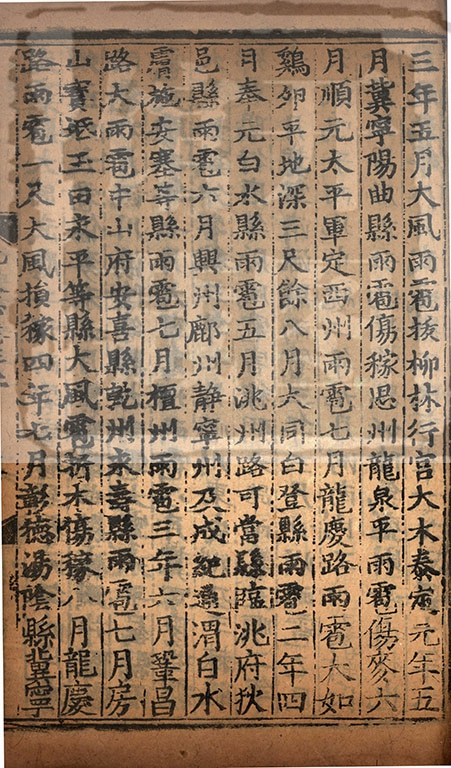 三年五月大風雨雹拔柳林行宫大木泰定元年五
月冀寧陽曲縣雨雹傷稼思州龍泉平雨雹傷麥六
月順元太平軍定西州雨雹七月龍慶路雨雹大如
鷄卵平地深三尺餘八月大同白登縣雨雹二年四
月奉元白水縣雨雹五月洮州路可當縣臨洮府狄
邑縣雨雹六月興州鄜州静寧州及成紀通渭白水
膚施安塞等縣雨雹七月檀州雨雹三年六月鞏昌
路大雨雹中山府安喜縣乾州永壽縣雨雹七月房
山寳坻玉田永平等縣大風雹折木傷稼八月龍慶
路雨雹一尺大風損稼四年七月彰德湯陰縣冀寧